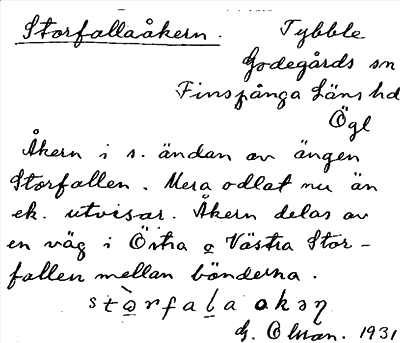 Storfallaåkern. Tybble
Godegårds sn
Finspånga Läns hd
Ögl
Åkern i s. ändan av ängen
Storfallen. Mera odlat nu än
ek. utvisar. Åkern delas av
en väg i Östra o Västra Stor-
fallen mellan bönderna.
stɔ̀rfaḷa okəɳ
G. Olsson. 1931